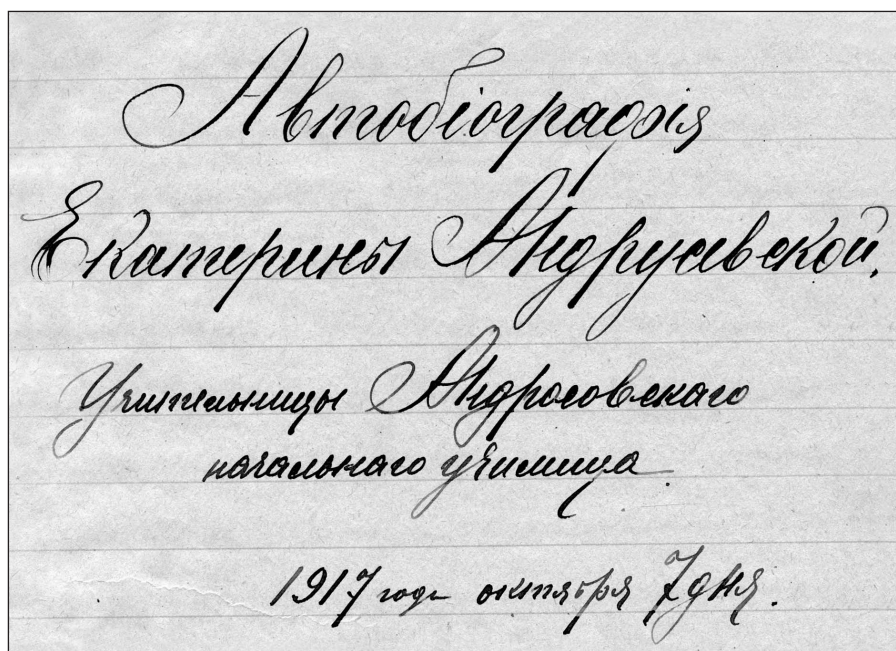 Автобіографія
Екатерины Андрусевской,
Учительницы Андросовскаго
начальнаго училища
1917 года октября 7 дня.